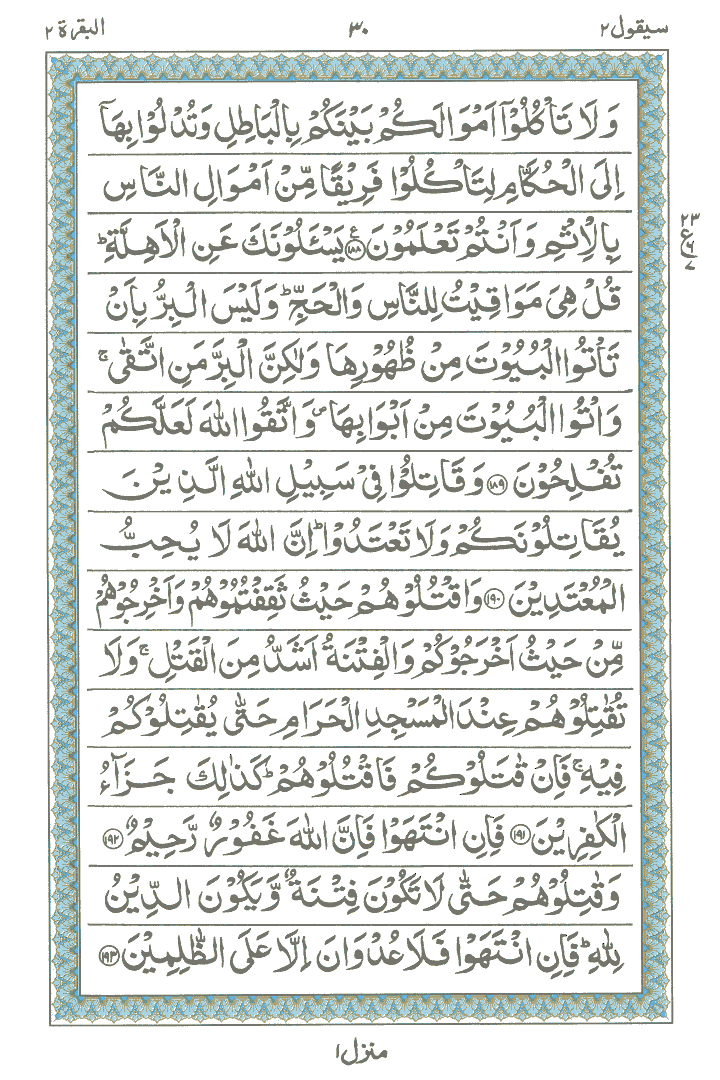 سيقول٢ ٣٠ البقرة٢
وَلَا تَاْكُلُوْٓا اَمْوَالَكُمْ بَيْنَكُمْ بِالْبَاطِلِ وَتُدْلُوْا بِهَآ
اِلَى الْحُكَّامِ لِتَاْكُلُوْا فَرِيْقًا مِّنْ اَمْوَالِ النَّاسِ
بِالْاِثْمِ وَاَنْتُمْ تَعْلَمُوْنَ ﴿١٨٨﴾ ع يَسْـَٔلُوْنَكَ عَنِ الْاَهِلَّةِ ؕ
٢٣
ع
٦
٧
قُلْ هِىَ مَوَاقِيْتُ لِلنَّاسِ وَالْحَجِّ ؕ وَلَيْسَ الْبِرُّ بِاَنْ
تَاْتُوا الْبُيُوْتَ مِنْ ظُهُوْرِهَا وَلٰكِنَّ الْبِرَّ مَنِ اتَّقٰى ۚ
وَاْتُوا الْبُيُوْتَ مِنْ اَبْوَابِهَا ۪ وَاتَّقُوا اللّٰهَ لَعَلَّكُمْ
تُفْلِحُوْنَ ﴿١٨٩﴾ وَقَاتِلُوْا فِىْ سَبِيْلِ اللّٰهِ الَّذِيْنَ
يُقَاتِلُوْنَكُمْ وَلَا تَعْتَدُوْا ؕ اِنَّ اللّٰهَ لَا يُحِبُّ
الْمُعْتَدِيْنَ ﴿١٩٠﴾ وَاقْتُلُوْهُمْ حَيْثُ ثَقِفْتُمُوْهُمْ وَاَخْرِجُوْهُمْ
مِّنْ حَيْثُ اَخْرَجُوْكُمْ وَالْفِتْنَةُ اَشَدُّ مِنَ الْقَتْلِ ۚ وَلَا
تُقٰتِلُوْهُمْ عِنْدَ الْمَسْجِدِ الْحَرَامِ حَتّٰى يُقٰتِلُوْكُمْ
فِيْهِ ۚ فَاِنْ قٰتَلُوْكُمْ فَاقْتُلُوْهُمْ ؕ كَذٰلِكَ جَزَآءُ
الْكٰفِرِيْنَ ﴿١٩١﴾ فَاِنِ انْتَهَوْا فَاِنَّ اللّٰهَ غَفُوْرٌ رَّحِيْمٌ ﴿١٩٢﴾
وَقٰتِلُوْهُمْ حَتّٰى لَا تَكُوْنَ فِتْنَةٌ وَّيَكُوْنَ الدِّيْنُ
لِلّٰهِ ؕ فَاِنِ انْتَهَوْا فَلَا عُدْوَانَ اِلَّا عَلَى الظّٰلِمِيْنَ ﴿١٩٣﴾
منزل١